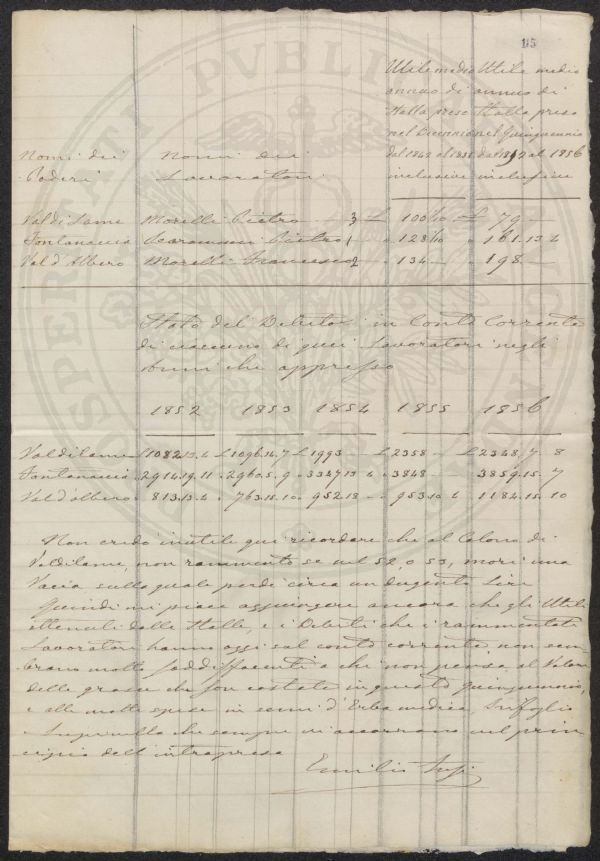 115
Utile medio Utile medio
annuo di annuo di
Stalla preso Stalla preso
nel Decennio nel Quinquennio
Nomi dei Nomi dei dal 1842 al 1851 dal 1852 al 1856
Poderi Lavoratori inclusive inclusive
Val di Lame Morelli Pietro 3 £ 100 £ 79
Fontanaccia Pietro 1 128 161.13.4
Val d'Albero Morelli Francesco 2 134 198
Stato del Debito in Conto Corrente
di ciascuno di quei Lavoratori negli
Anni che appresso
1852 1853 1854 1855 1856
Valdilame 1082.13.4 £ 1096.14.7 £ 1993 £ 2358 £ 2348.7.8
Fontanaccia 2914.19.11 2960.5.9 3327.13.4 3848 3859.15.7
Val d'albero 813.13.4 763.15.10 952.18 953.10.4 1184.15.10
Non credo inutile qui ricordare che al Colono di
Valdilame, non rammento se nel 52, o 53, morì una
Vacca sulla quale perdè circa un dugento Lire
Quindi mi piace aggiungere ancora che gli Utili
ottenuti dalle Stalle, e i Debiti che i rammentati
Lavoratori hanno oggi sul conto corrente, non sem-
brano molto soddisfacenti a chi non pensa al Valore
delle grasce che son costate in questo Quinquennio,
e alle molte spese in semi d'Erba medica, Trifoglio
e Lupinella che sempre si nel prin
cipio dell'intrapresa
Emilio